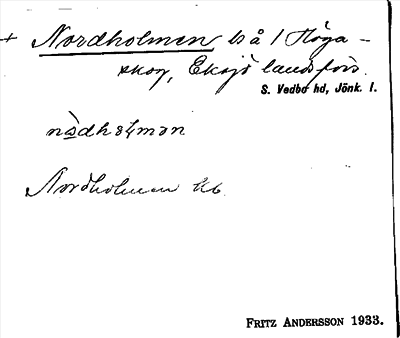 + Nordholmen, bå / Höga-
skog, Eksjö landsförs.
S. Vedbo hd, Jönk. l.
nòdhɔɫmən
Nordholmen tb
FRITZ ANDERSSON 1933.